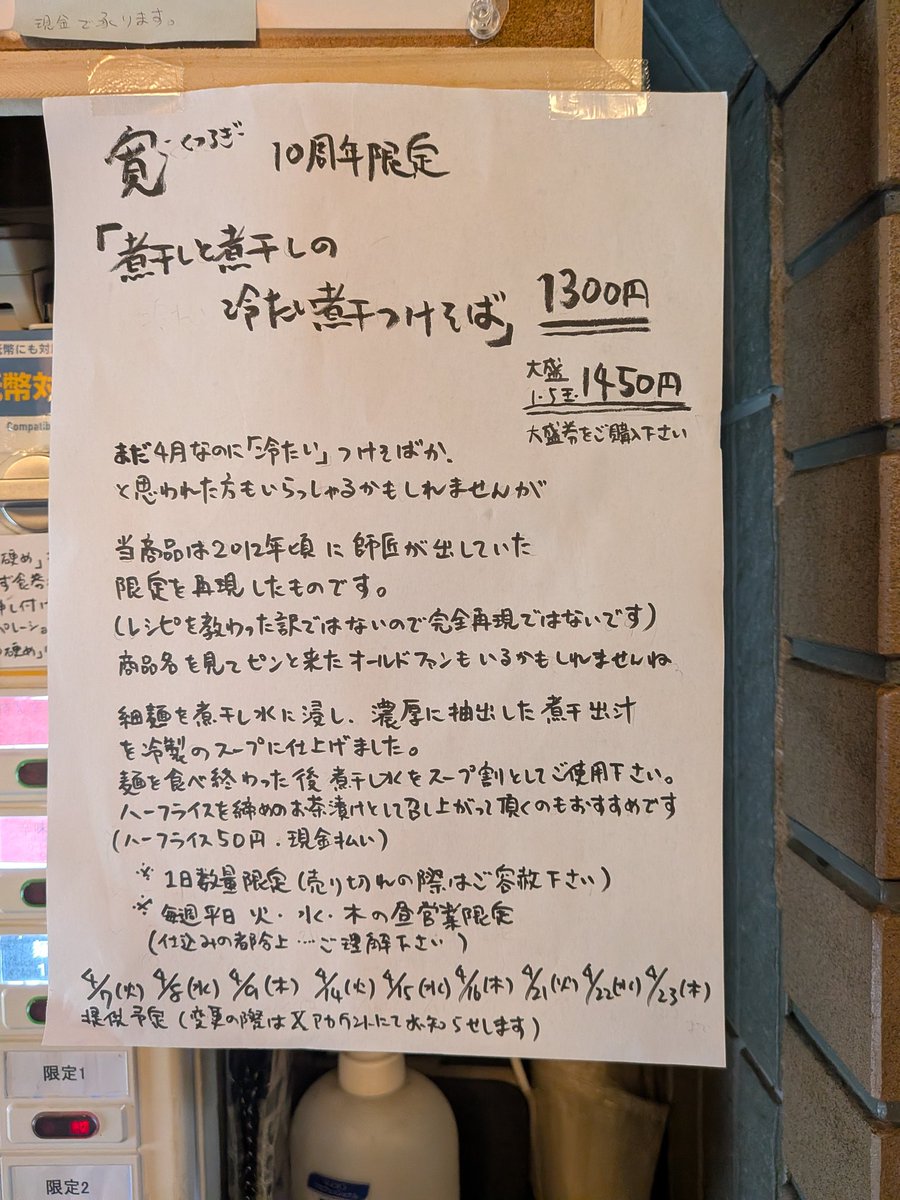 現金で承ります。
寛 くつろぎ 10周年限定
「煮干しと煮干しの
冷たい煮干つけそば」 1300円
大盛 1.5玉 1450円
大盛券をご購入下さい
まだ4月なのに「冷たい」つけそばか、
と思われた方もいらっしゃるかもしれませんが
当商品は2012年頃に師匠が出していた
限定を再現したものです。
(レシピを教わった訳ではないので完全再現ではないです)
商品名を見てピンと来たオールドファンもいるかもしれませんね
細麺を煮干し水に浸し、濃厚に抽出した煮干出汁
を冷製のスープに仕上げました。
麺を食べ終わった後煮干し水をスープ割としてご使用下さい。
ハーフライスを締めのお茶漬けとして召し上がって頂くのもおすすめです
(ハーフライス50円・現金払い)
※ 1日数量限定(売り切れの際はご容赦下さい)
※ 毎週平日 火・水・木の昼営業限定
(仕込みの都合上…ご理解下さい)
4/7(火) 4/8(水) 4/9(木) 4/14(火) 4/15(水) 4/16(木) 4/21(火) 4/22(水) 4/23(木)
提供予定(変更の際はXアカウントにてお知らせします)
紙幣にも対
幣対
Compatib
硬め」
ず食券
申し付け
ペレーショ
硬め」
限定1
限定2